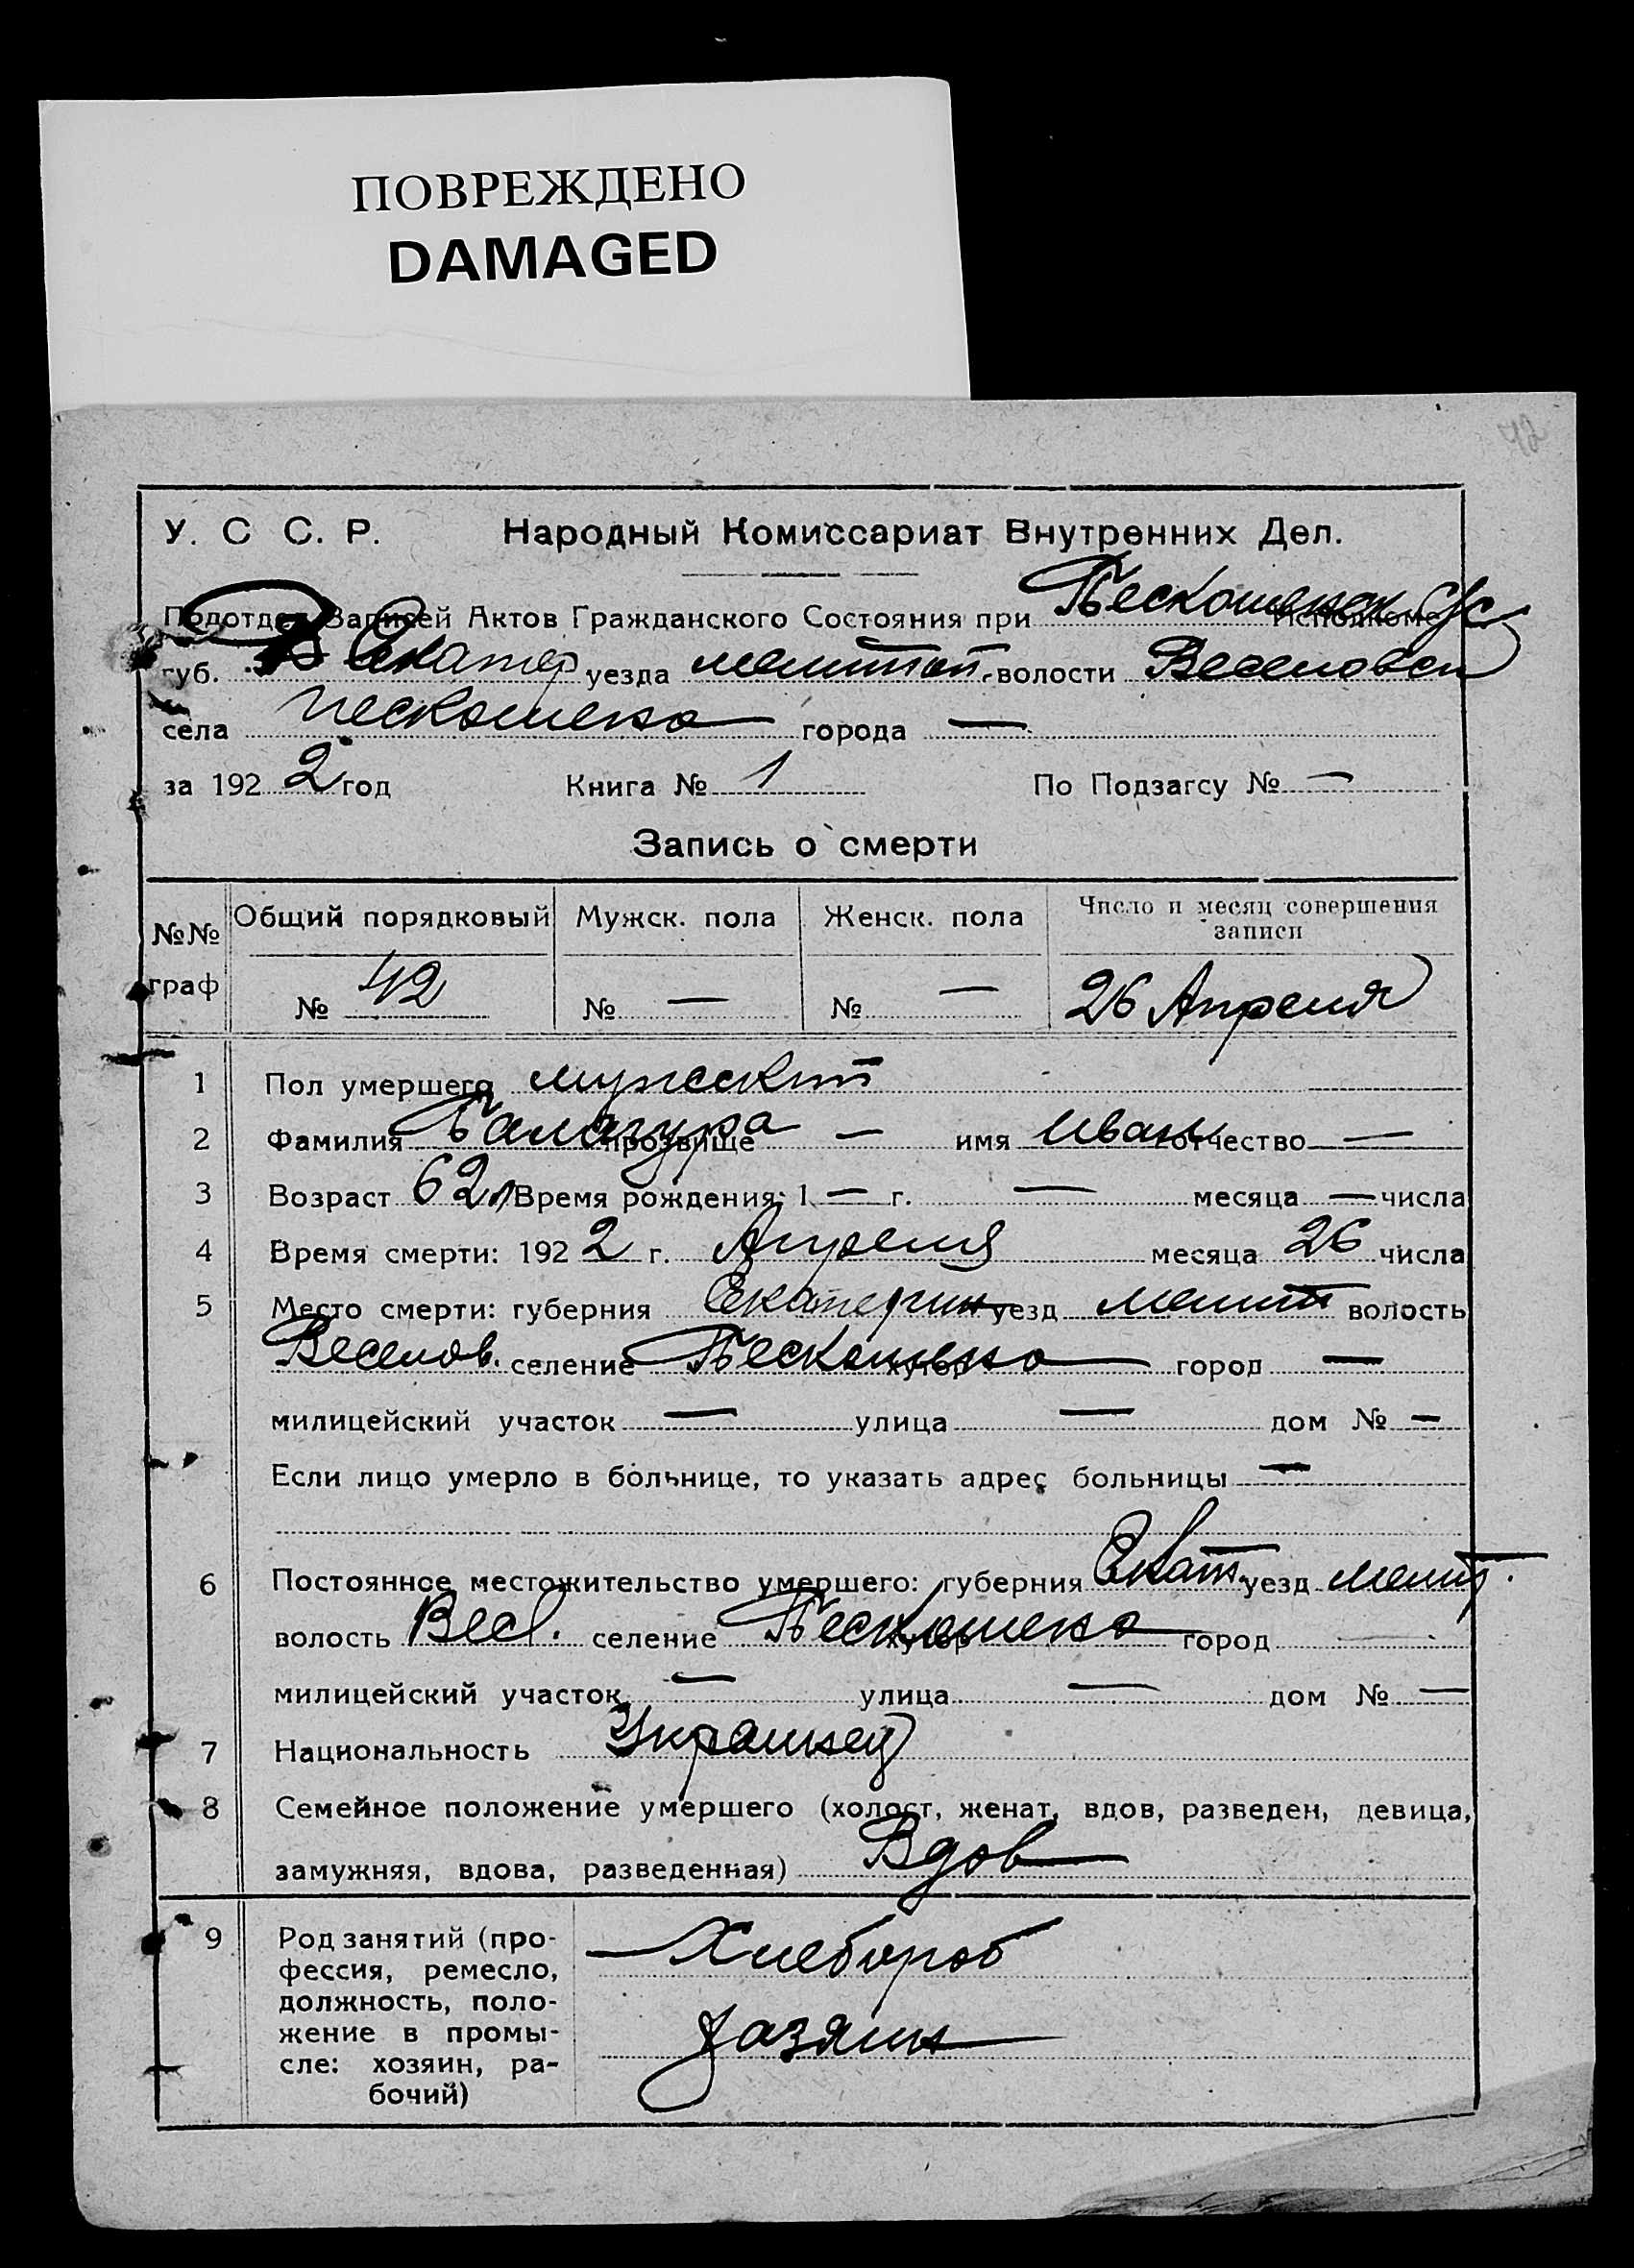 ПОВРЕЖДЕНО
DAMAGED
42
У. С С. Р. Народный Комиссариат Внутренних Дел.
Подотдел Записей Актов Гражданского Состояния при Пескошенск Исполкоме
губ. Екатер уезда мелитоп. волости Веселовск
села Пескошено города —
за 192 2 год Книга № 1 По Подзагсу № —
Запись о смерти
№№ граф Общий порядковый Мужск. пола Женск. пола Число и месяц совершения записи
№ 42 № — № — 26 Апреля
1 Пол умершего мужеский
2 Фамилия Балагура прозвище — имя Иван отчество —
3 Возраст 62 л Время рождения: 1 — г. — месяца — числа
4 Время смерти: 192 2 г. Апреля месяца 26 числа
5 Место смерти: губерния Екатерин уезд мелит волость
Веселов. селение Пескошено хутор город —
милицейский участок — улица — дом № —
Если лицо умерло в больнице, то указать адрес больницы —
6 Постоянное местожительство умершего: губерния Екат. уезд мелит.
волость Весл. селение Пескошено хутор город —
милицейский участок — улица — дом № —
7 Национальность Украинец
8 Семейное положение умершего (холост, женат, вдов, разведен, девица,
замужняя, вдова, разведенная) Вдов
9 Род занятий (про-
фессия, ремесло,
должность, поло-
жение в промы-
сле: хозяин, ра-
бочий)
Хлебороб
хазяин